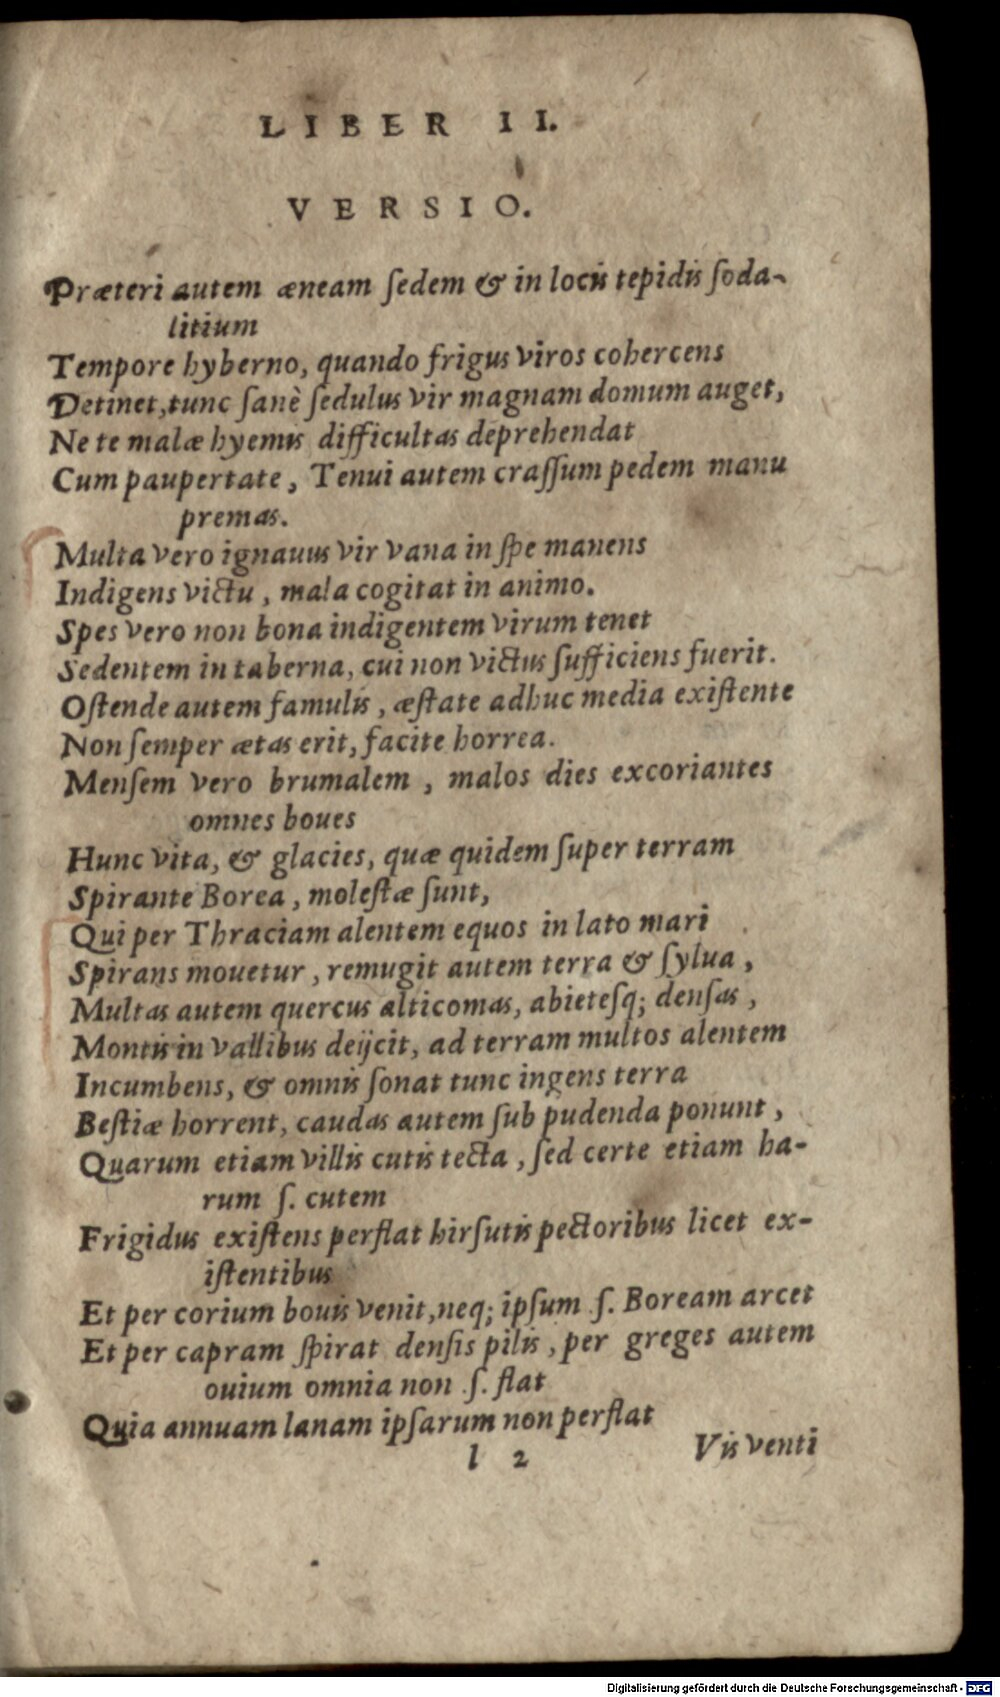 LIBER II.
VERSIO.
Præteri autem æneam ſedem & in locis tepidis ſoda-
litium
Tempore hyberno, quando frigus viros cohercens
Detinet, tunc ſanè ſedulus vir magnam domum auget,
Ne te malæ hyemis difficultas deprehendat
Cum paupertate, Tenui autem craſſum pedem manu
premas.
Multa vero ignauus vir vana in ſpe manens
Indigens victu, mala cogitat in animo.
Spes vero non bona indigentem virum tenet
Sedentem in taberna, cui non victus ſufficiens fuerit.
Oſtende autem famulis, æſtate adhuc media exiſtente
Non ſemper ætas erit, facite horrea.
Menſem vero brumalem, malos dies excoriantes
omnes boues
Hunc vita, & glacies, quæ quidem ſuper terram
Spirante Borea, moleſtæ ſunt,
Qui per Thraciam alentem equos in lato mari
Spirans mouetur, remugit autem terra & ſylua,
Multas autem quercus alticomas, abieteſq; denſas,
Montis in vallibus deijcit, ad terram multos alentem
Incumbens, & omnis ſonat tunc ingens terra
Beſtiæ horrent, caudas autem ſub pudenda ponunt,
Quarum etiam villis cutis tecta, ſed certe etiam ha-
rum ſ. cutem
Frigidus exiſtens perflat hirſutis pectoribus licet ex-
iſtentibus
Et per corium bouis venit, neq; ipſum ſ. Boream arcet
Et per capram ſpirat denſis pilis, per greges autem
ouium omnia non ſ. flat
Quia annuam lanam ipſarum non perflat
l 2 Vis venti
Digitalisierung gefördert durch die Deutsche Forschungsgemeinschaft - DFG